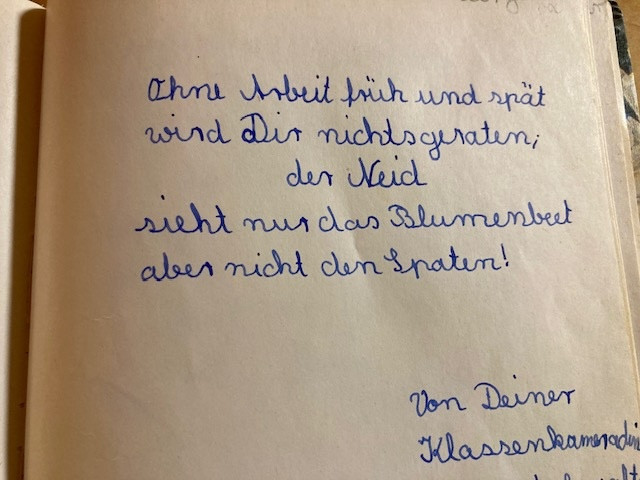 Ohne Arbeit früh und spät
wird Dir nichts geraten;
der Neid
sieht nur das Blumenbeet
aber nicht den Spaten!
Von Deiner
Klassenkameradin